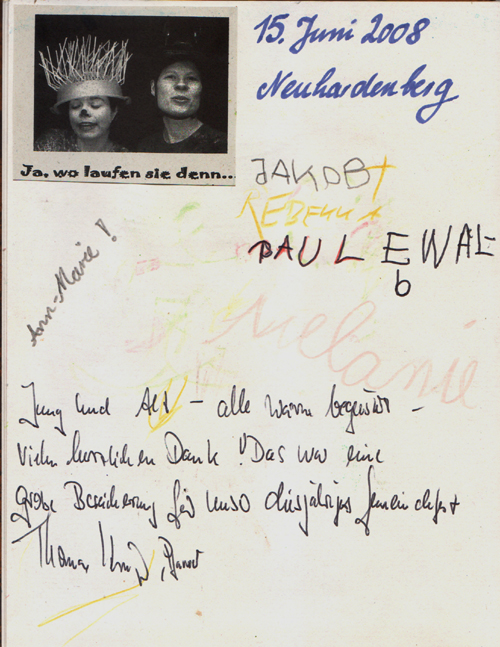 15. Juni 2008
Neuhardenberg
Ja, wo laufen sie denn...
JAKOB +
REBEKKA
PAUL EWAL
b
Ann-Marie!
Melanie
Jung und Alt – alle waren begeistert –
Vielen herzlichen Dank! Das war eine
große Bereicherung für unser diesjähriges Gemeindefest
Thomas , Pfarrer